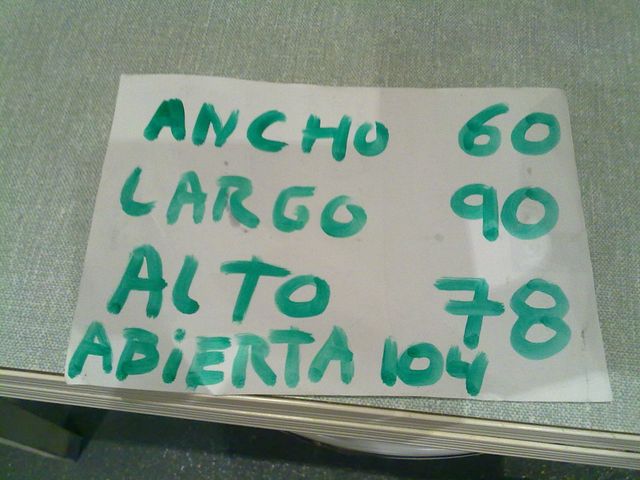 ANCHO 60
LARGO 90
ALTO 78
ABiERTA 104